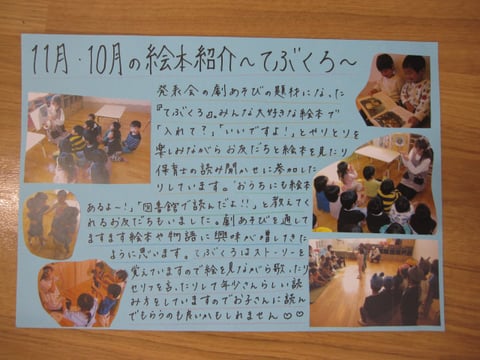 11月・10月の絵本紹介〜てぶくろ〜
発表会の劇あそびの題材になった
『てぶくろ』。みんな大好きな絵本で
「入れて?」「いいですよ!」とやりとりを
楽しみながらお友だちと絵本を見たり
保育士の読み聞かせに参加した
りしています。「おうちにも絵本
あるよ〜!」「図書館で読んだよ!!」と教えてく
れるお友だちもいました。劇あそびを通して
ますます絵本や物語に興味が増してきた
ように思います。てぶくろはストーリーを
覚えていますので絵を見ながら歌ったり
セリフを言ったりして年少さんらしい読
み方をしていますのでお子さんに読ん
でもらうのも良いかもしれません♡♡